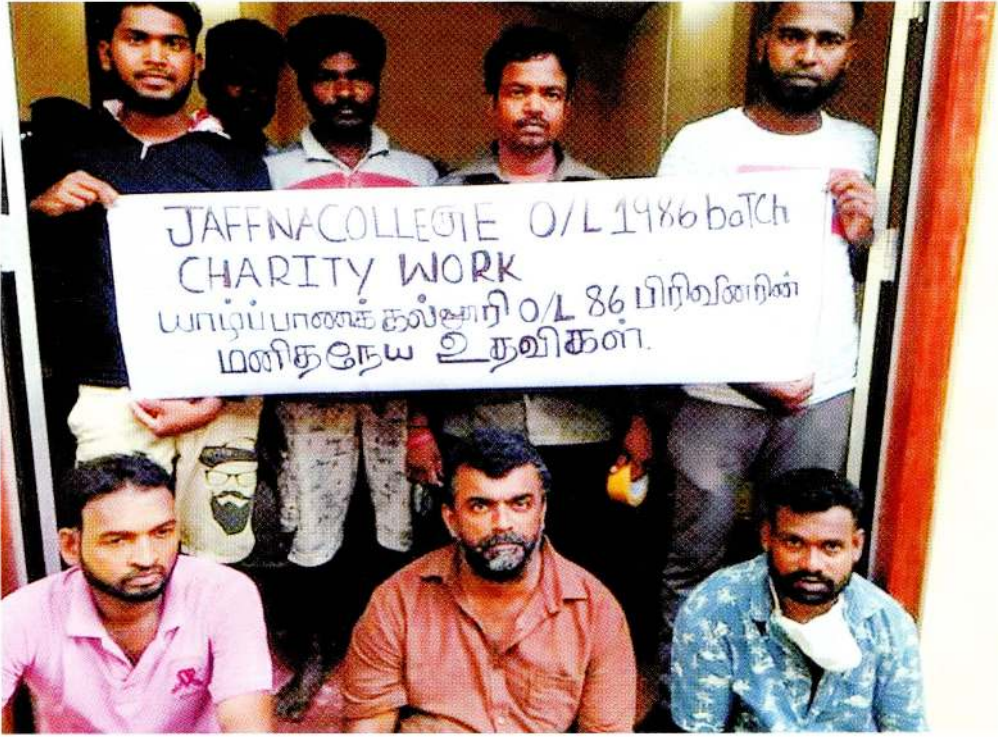 JAFFNA COLLEGE O/L 1986 baTCh
CHARITY WORK
யாழ்ப்பாணக் கல்லூரி O/L 86 பிரிவினரின்
மனிதநேய உதவிகள்.